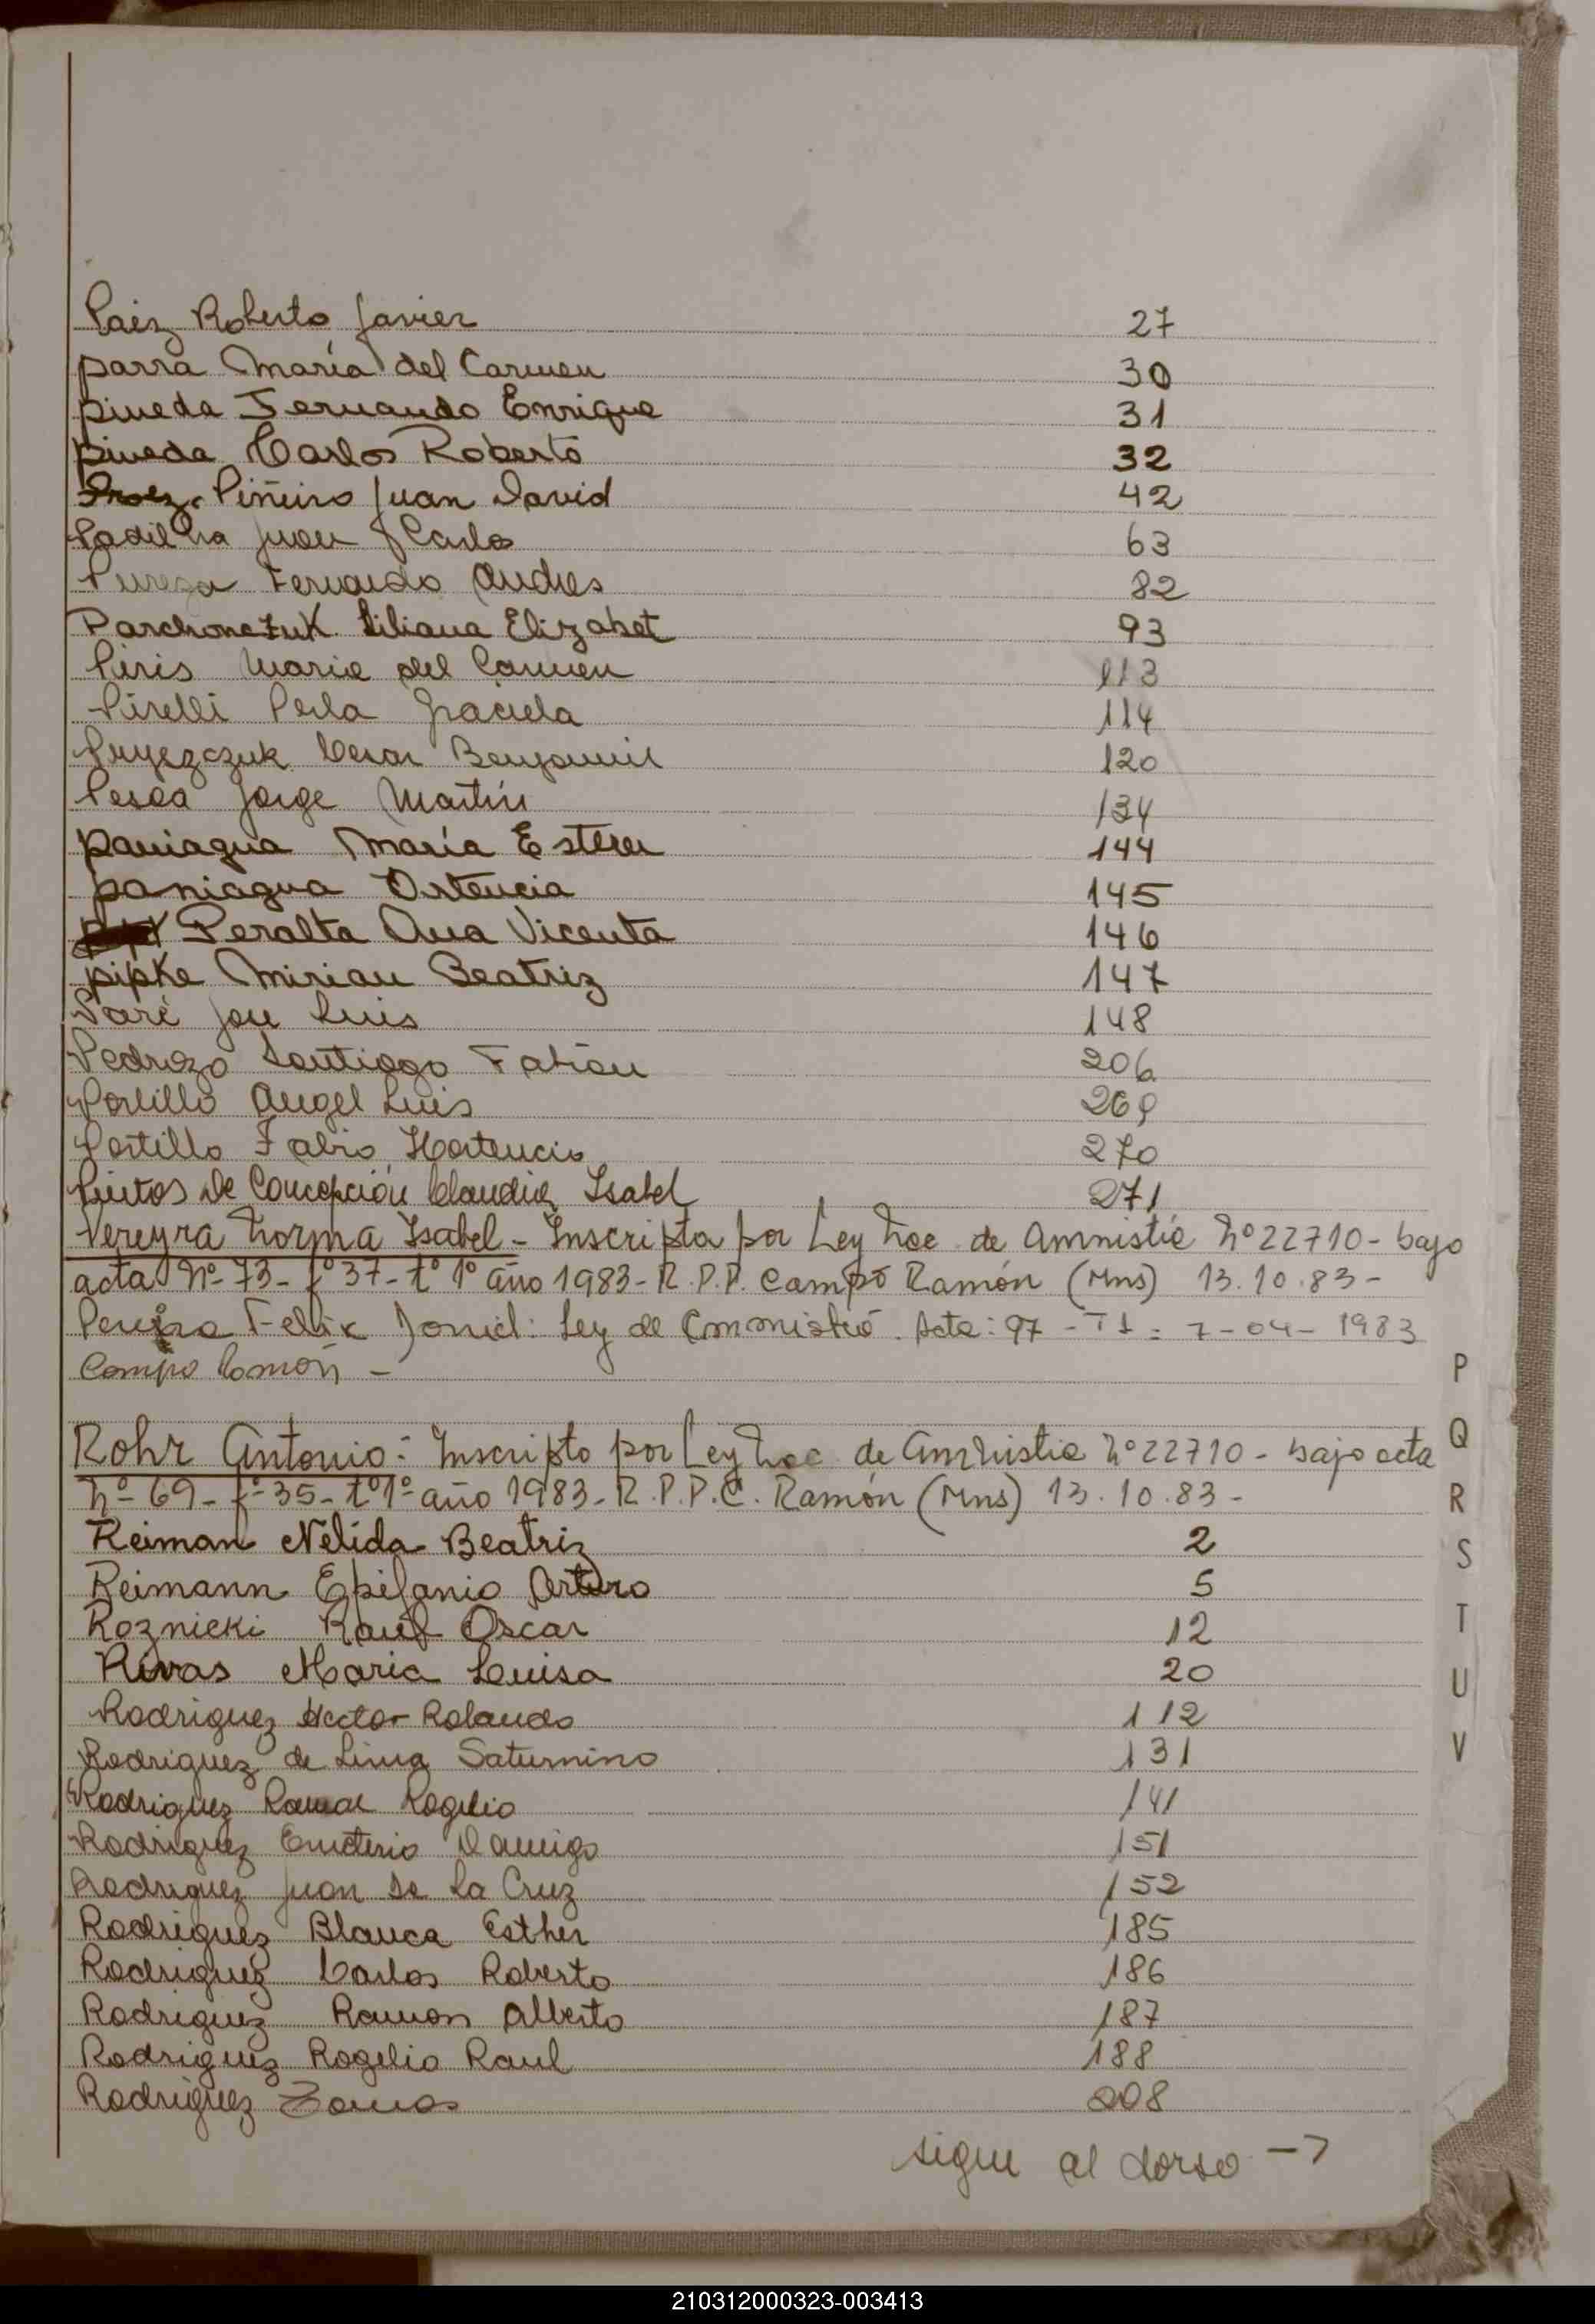 Paéz Roberto Javier 27
parra María del Carmen 30
pineda Fernando Enrique 31
pineda Carlos Roberto 32
Piñeiro Juan David 42
Padilha Juan Carlos 63
Pereza Fernando Andres 82
Parchonczuk Liliana Elizabet 93
Piris Maria del Carmen 113
Pirelli Perla Graciela 114
Pryszczuk Cesar Benjamin 120
Pesca Jorge Martin 134
paniagua María Ester 144
paniagua Ortencia 145
Peralta Ana Vicenta 146
pipke Mirian Beatriz 147
Paré José Luis 148
Pedrozo Santiago Fabián 206
Portillo Angel Luis 269
Portillo Fabio Hortencio 270
Pintos de Concepción Claudia Isabel 271
Pereyra Norma Isabel - Inscripta por Ley Nac. de Amnistía Nº 22710 - bajo
acta Nº 73 - fº 37 - tº 1º año 1983 - R.P.P. Campo Ramón (Mns) 13.10.83 -
Pereira Felix : Ley de Ammistió. Acta: 97 - T1 = 7-04-1983
Campo Ramón -
Rohr Antonio: Inscripto por Ley Nac. de Amnistia Nº 22710 - bajo acta
Nº 69 - fº 35 - tº 1º año 1983 - R.P.P.C. Ramón (Mns) 13.10.83 -
Reiman Nélida Beatriz 2
Reimann Epifanio Arturo 5
Roznieki Raúl Oscar 12
Rivas Maria Luisa 20
Rodriguez Hector Rolando 112
Rodriguez de Lima Saturnino 131
Rodriguez Ramon Rogelio 141
Rodriguez Emeterio Damigo 151
Rodriguez Juan de La Cruz 152
Rodriguez Blanca Esther 185
Rodriguez Carlos Roberto 186
Rodriguez Ramon Alberto 187
Rodriguez Rogelio Raul 188
Rodriguez Tomas 208
sigue al dorso ->
P
Q
R
S
T
U
V
210312000323-003413